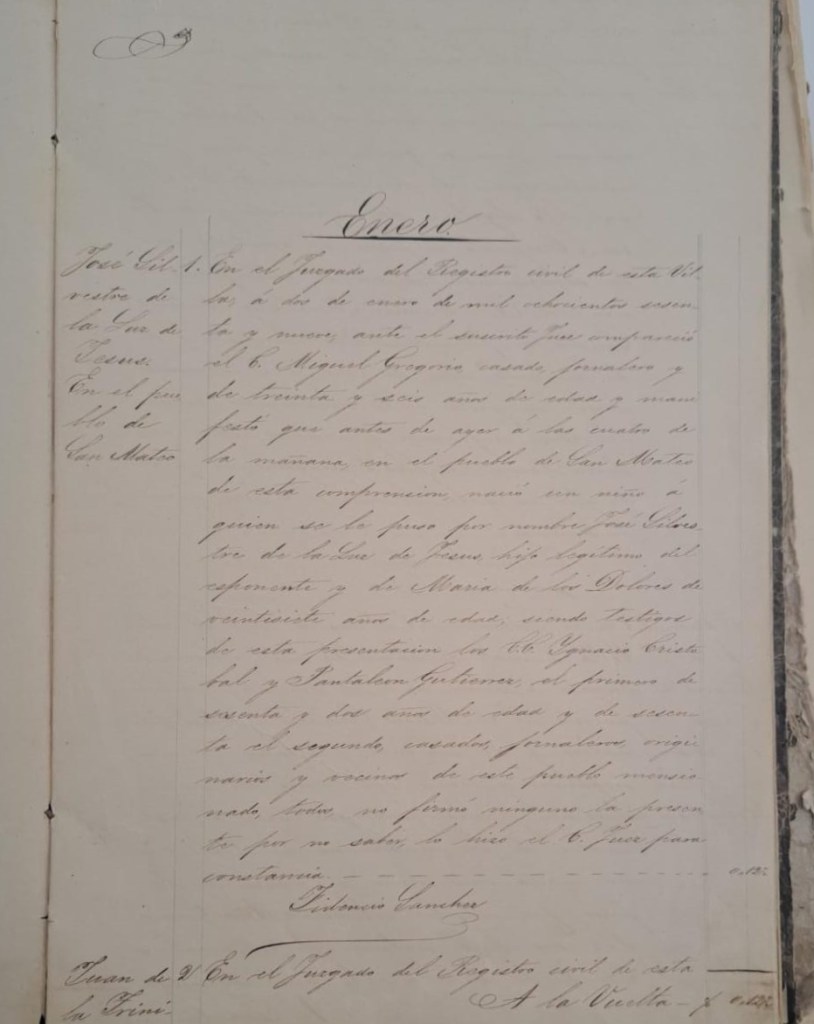 Enero.
José Sil-
vestre de
la Luz de
Jesus.
En el pue
blo de
San Mateo
1. En el Juzgado del Registro civil de esta Vil-
la, á dos de enero de mil ochocientos sesen-
ta y nueve, ante el suscrito Juez compareció
el C. Miguel Gregorio, casado, jornalero y
de treinta y seis años de edad y mani
festó que antes de ayer á las cuatro de
la mañana, en el pueblo de San Mateo
de esta comprension, nació un niño á
quien se le puso por nombre José Silves-
tre de la Luz de Jesus, hijo legitimo del
esponente y de Maria de los Dolores de
veintisiete años de edad; siendo testigos
de esta presentacion los CC. Ygnacio Cristo
bal y Pantaleon Gutierrez, el primero de
sesenta y dos años de edad y de sesen-
ta el segundo, casados, jornaleros, origi
narios y vecinos de este pueblo mensio
nado, todos, no firmó ninguno la presen
te por no saber, lo hizo el C. Juez para
constancia. - - - - - - - - - - 0.12½
Fidencio Sanchez
Juan de
la Trini-
2 En el Juzgado del Registro civil de esta
A la Vuelta - $ 0.12½